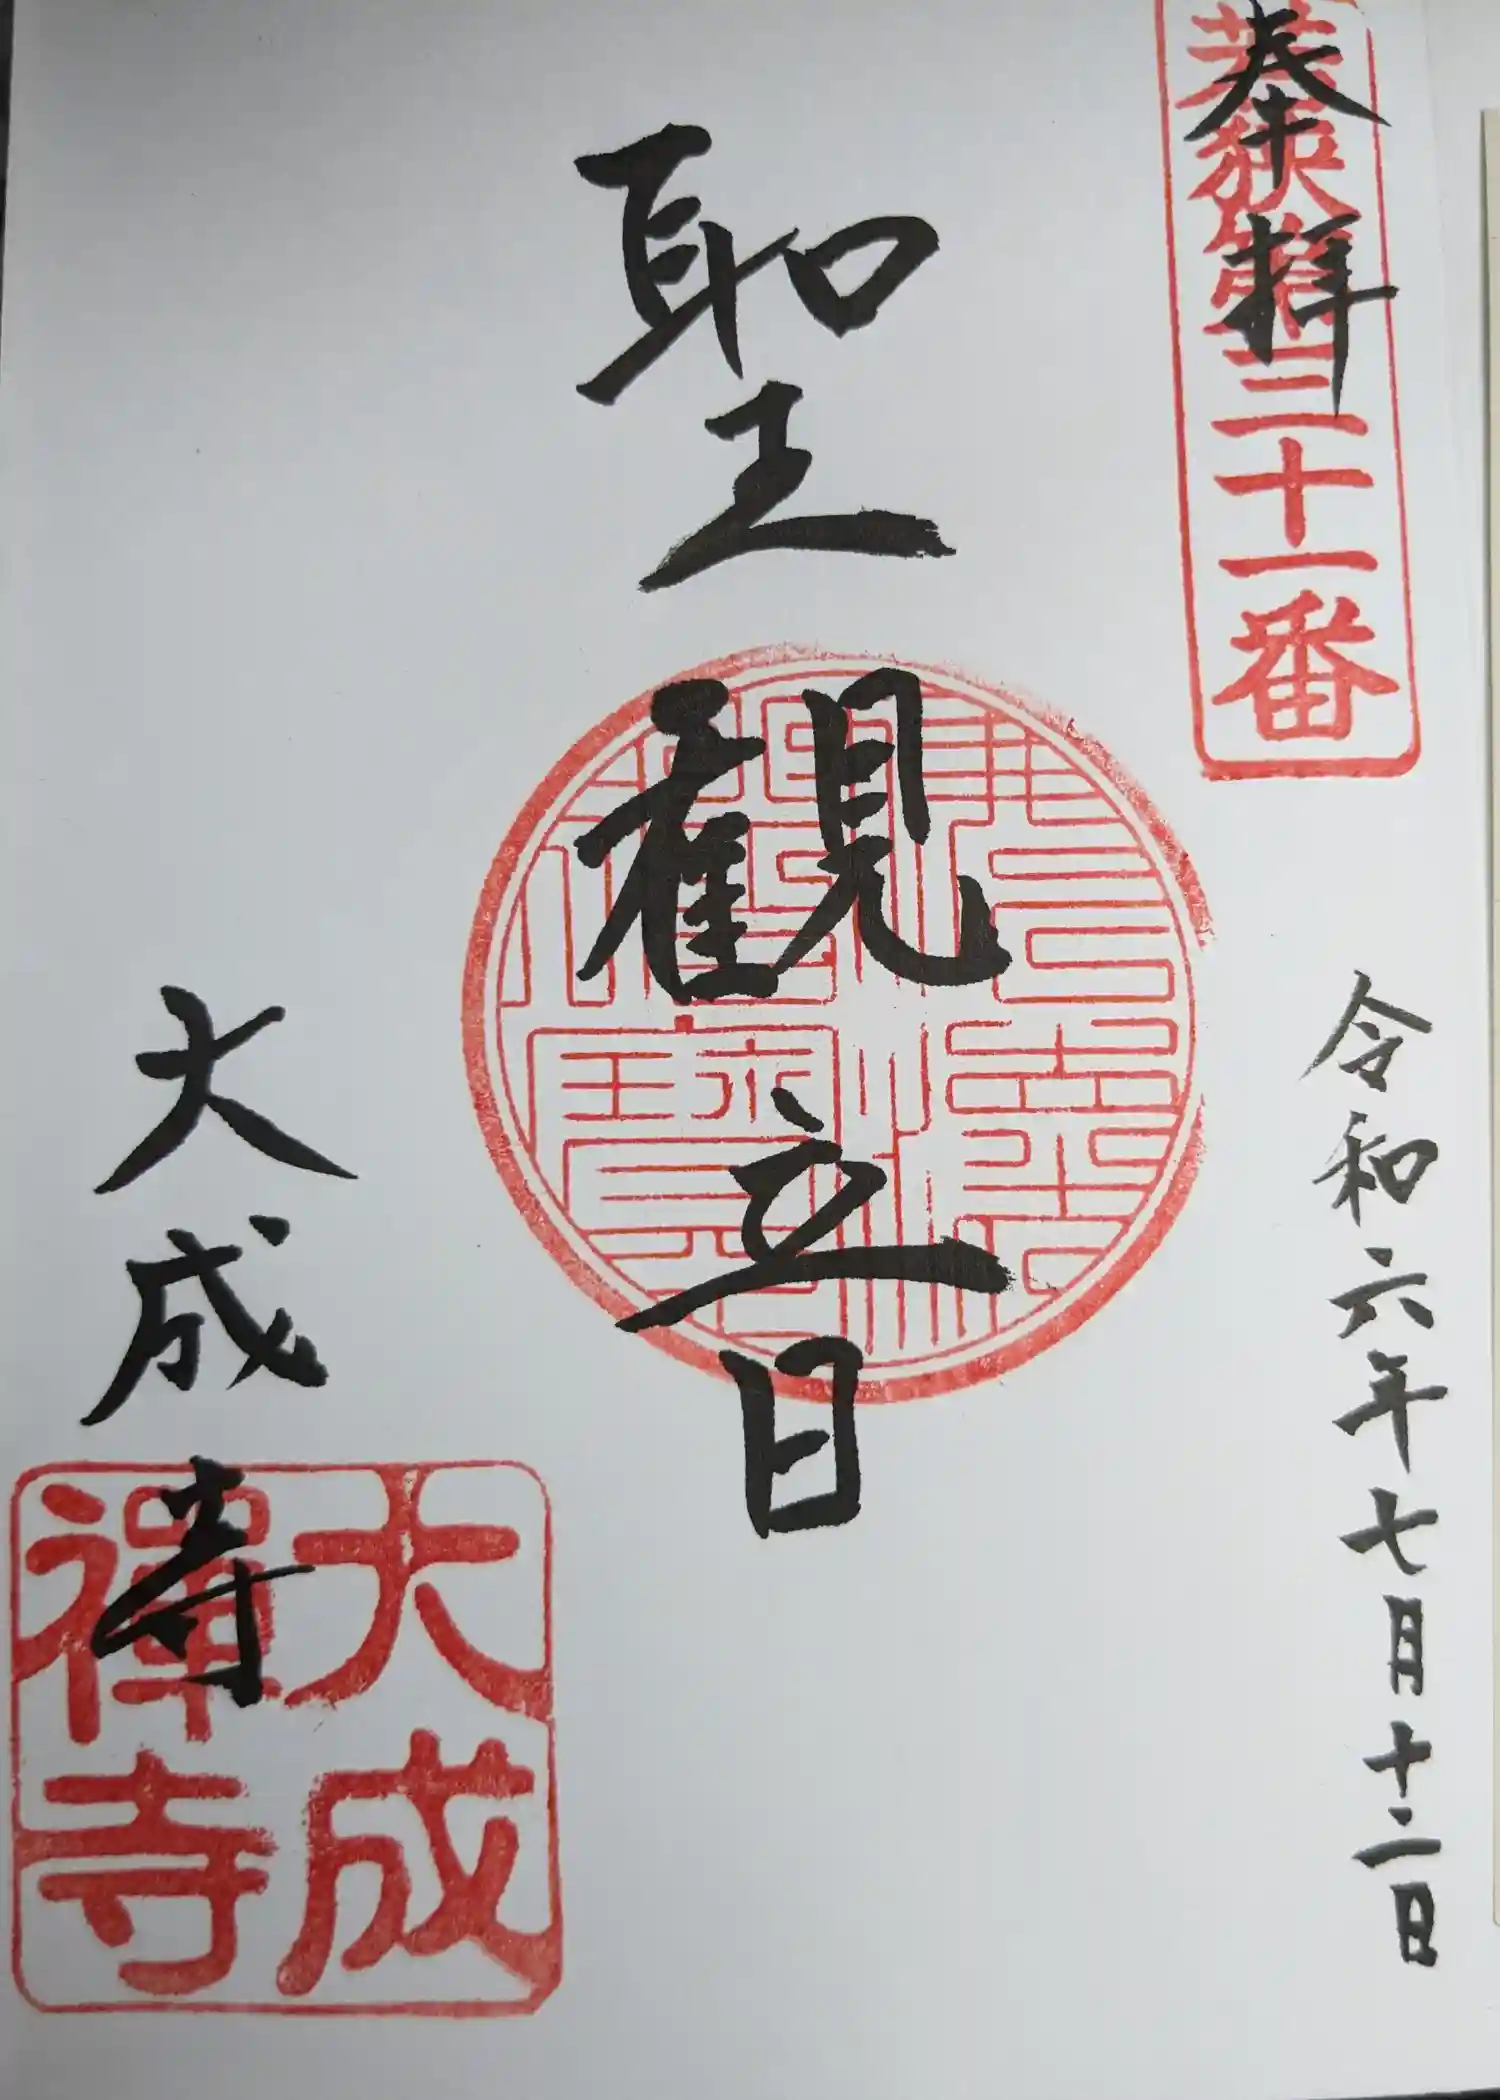 奉拝
若狭第三十一番
令和六年七月十二日
聖観音
大成寺
大成
禅寺